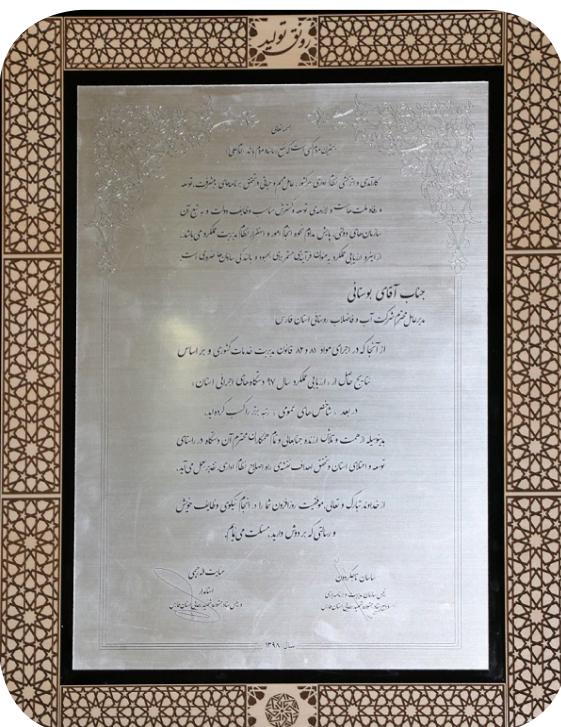 رونق تولید
بسمه تعالی
کارآمدی و اثربخشی نظام اداری هر کشور، عامل مهم و حیاتی در تحقق برنامه‌های پیشرفت، توسعه
و رفاه ملت‌هاست و لازمه‌ی توسعه و گسترش مناسب وظایف دولت و به تبع آن
سازمان‌های دولتی، پایش مداوم نحوه انجام امور و استقرار نظام مدیریت عملکرد می‌باشد.
از اینرو ارزیابی عملکرد به عنوان فرآیندی مستمر برای بهبود و بالندگی سازمان‌ها ضروری است.
جناب آقای بوستانی
مدیر عامل محترم شرکت آب و فاضلاب روستایی استان فارس
از آنجا که در اجرای مواد ۸۱ و ۸۲ قانون مدیریت خدمات کشوری و بر اساس
نتایج حاصل از ارزیابی عملکرد سال ۹۷ دستگاه‌های اجرایی استان،
در بعد شاخص‌های عمومی، رتبه برتر را کسب کرده‌اید،
بدینوسیله از زحمت و تلاش ارزنده جنابعالی و تمام همکاران محترم آن دستگاه در راستای
توسعه و اعتلای استان و تحقق اهداف نقشه‌ی راه اصلاح نظام اداری، تقدیر بعمل می‌آید.
از خداوند تبارک و تعالی موفقیت روزافزون شما را در انجام نیکوی وظایف خویش
و رسالتی که بر دوش دارید، مسئلت می‌نمایم.
عنایت اله رحیمی
استاندار
رئیس سازمان مدیریت و برنامه‌ریزی
سال ۱۳۹۸